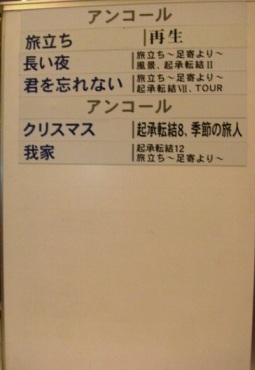 アンコール
旅立ち 再生
長い夜 旅立ち~足寄より~
風景、起承転結Ⅱ
君を忘れない 旅立ち~足寄より~
起承転結Ⅶ、TOUR
アンコール
クリスマス 起承転結8、季節の旅人
我家 起承転結12
旅立ち~足寄より~